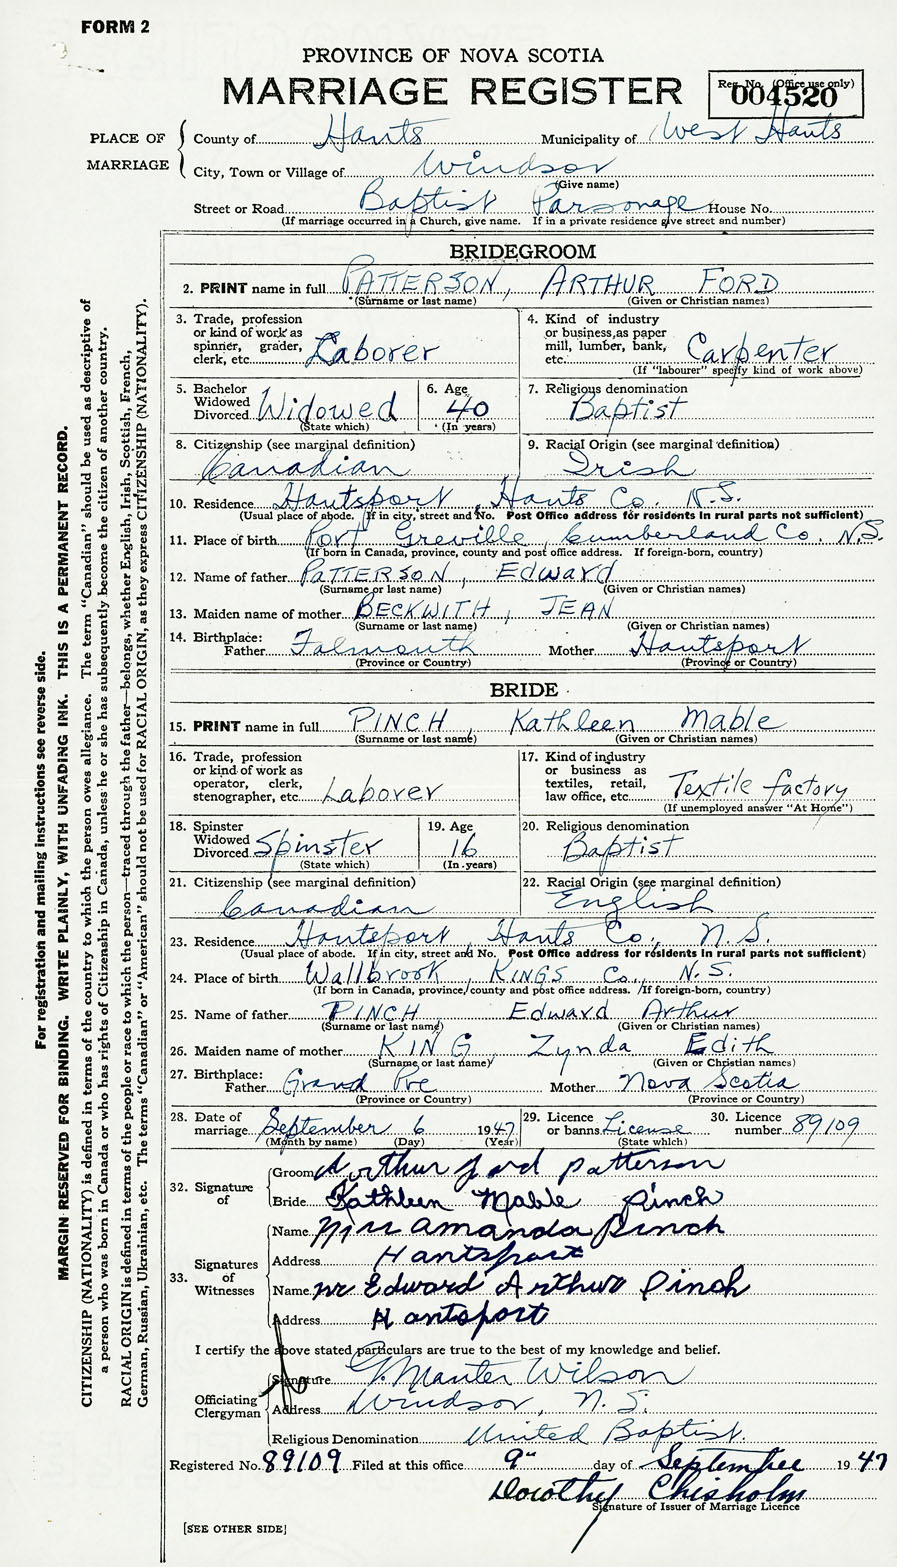 FORM 2
PROVINCE OF NOVA SCOTIA
MARRIAGE REGISTER
Reg. No. (Office use only)
004520
PLACE OF MARRIAGE
County of Hants Municipality of West Hants
City, Town or Village of Windsor
(Give name)
Street or Road Baptist Parsonage House No.
(If marriage occurred in a Church, give name. If in a private residence give street and number)
BRIDEGROOM
2. PRINT name in full PATTERSON, ARTHUR FORD
(Surname or last name) (Given or Christian names)
3. Trade, profession or kind of work as spinner, grader, clerk, etc. Laborer
4. Kind of industry or business, as paper mill, lumber, bank, etc. Carpenter
(If "labourer" specify kind of work above)
5. Bachelor Widowed Divorced Widowed
(State which)
6. Age 40
(In years)
7. Religious denomination
Baptist
8. Citizenship (see marginal definition)
Canadian
9. Racial Origin (see marginal definition)
Irish
10. Residence Hantsport, Hants Co. N.S.
(Usual place of abode. If in city, street and No. Post Office address for residents in rural parts not sufficient)
11. Place of birth Port Greville, Cumberland Co. N.S.
(If born in Canada, province, county and post office address. If foreign-born, country)
12. Name of father PATTERSON, EDWARD
(Surname or last name) (Given or Christian names)
13. Maiden name of mother BECKWITH, JEAN
(Surname or last name) (Given or Christian names)
14. Birthplace:
Father Falmouth Mother Hantsport
(Province or Country) (Province or Country)
BRIDE
15. PRINT name in full PINCH, Kathleen Mable
(Surname or last name) (Given or Christian names)
16. Trade, profession or kind of work as operator, clerk, stenographer, etc. Laborer
17. Kind of industry or business as textiles, retail, law office, etc. Textile factory
(If unemployed answer "At Home")
18. Spinster Widowed Divorced Spinster
(State which)
19. Age 16
(In years)
20. Religious denomination
Baptist
21. Citizenship (see marginal definition)
Canadian
22. Racial Origin (see marginal definition)
English
23. Residence Hantsport, Hants Co., N.S.
(Usual place of abode. If in city, street and No. Post Office address for residents in rural parts not sufficient)
24. Place of birth Wallbrook, KINGS Co., N.S.
(If born in Canada, province, county and post office address. If foreign-born, country)
25. Name of father PINCH, Edward Arthur
(Surname or last name) (Given or Christian names)
26. Maiden name of mother KING, Zynda Edith
(Surname or last name) (Given or Christian names)
27. Birthplace:
Father Grand Pre Mother Nova Scotia
(Province or Country) (Province or Country)
28. Date of marriage September 6 1947
(Month by name) (Day) (Year)
29. Licence or banns License
(State which)
30. Licence number 89109
32. Signature of
Groom Arthur ford patterson
Bride Kathleen Mable Pinch
33. Signatures of Witnesses
Name Mrs Amanda Pinch
Address Hantsport
Name Mr Edward Arthur Pinch
Address Hantsport
I certify the above stated particulars are true to the best of my knowledge and belief.
Officiating Clergyman
Signature G. Manter Wilson
Address Windsor, N.S.
Religious Denomination United Baptist.
Registered No. 89109 Filed at this office 9" day of September 1947
Dorothy Chisholm
Signature of Issuer of Marriage Licence
[SEE OTHER SIDE]
For registration and mailing instructions see reverse side.
MARGIN RESERVED FOR BINDING. WRITE PLAINLY, WITH UNFADING INK. THIS IS A PERMANENT RECORD.
CITIZENSHIP (NATIONALITY) is defined in terms of the country to which the person owes allegiance. The term "Canadian" should be used as descriptive of
a person who was born in Canada or who has rights of Citizenship in Canada, unless he or she has subsequently become the citizen of another country.
RACIAL ORIGIN is defined in terms of the people or race to which the person—traced through the father—belongs, whether English, Irish, Scottish, French,
German, Russian, Ukrainian, etc. The terms "Canadian" or "American" should not be used for RACIAL ORIGIN, as they express CITIZENSHIP (NATIONALITY).